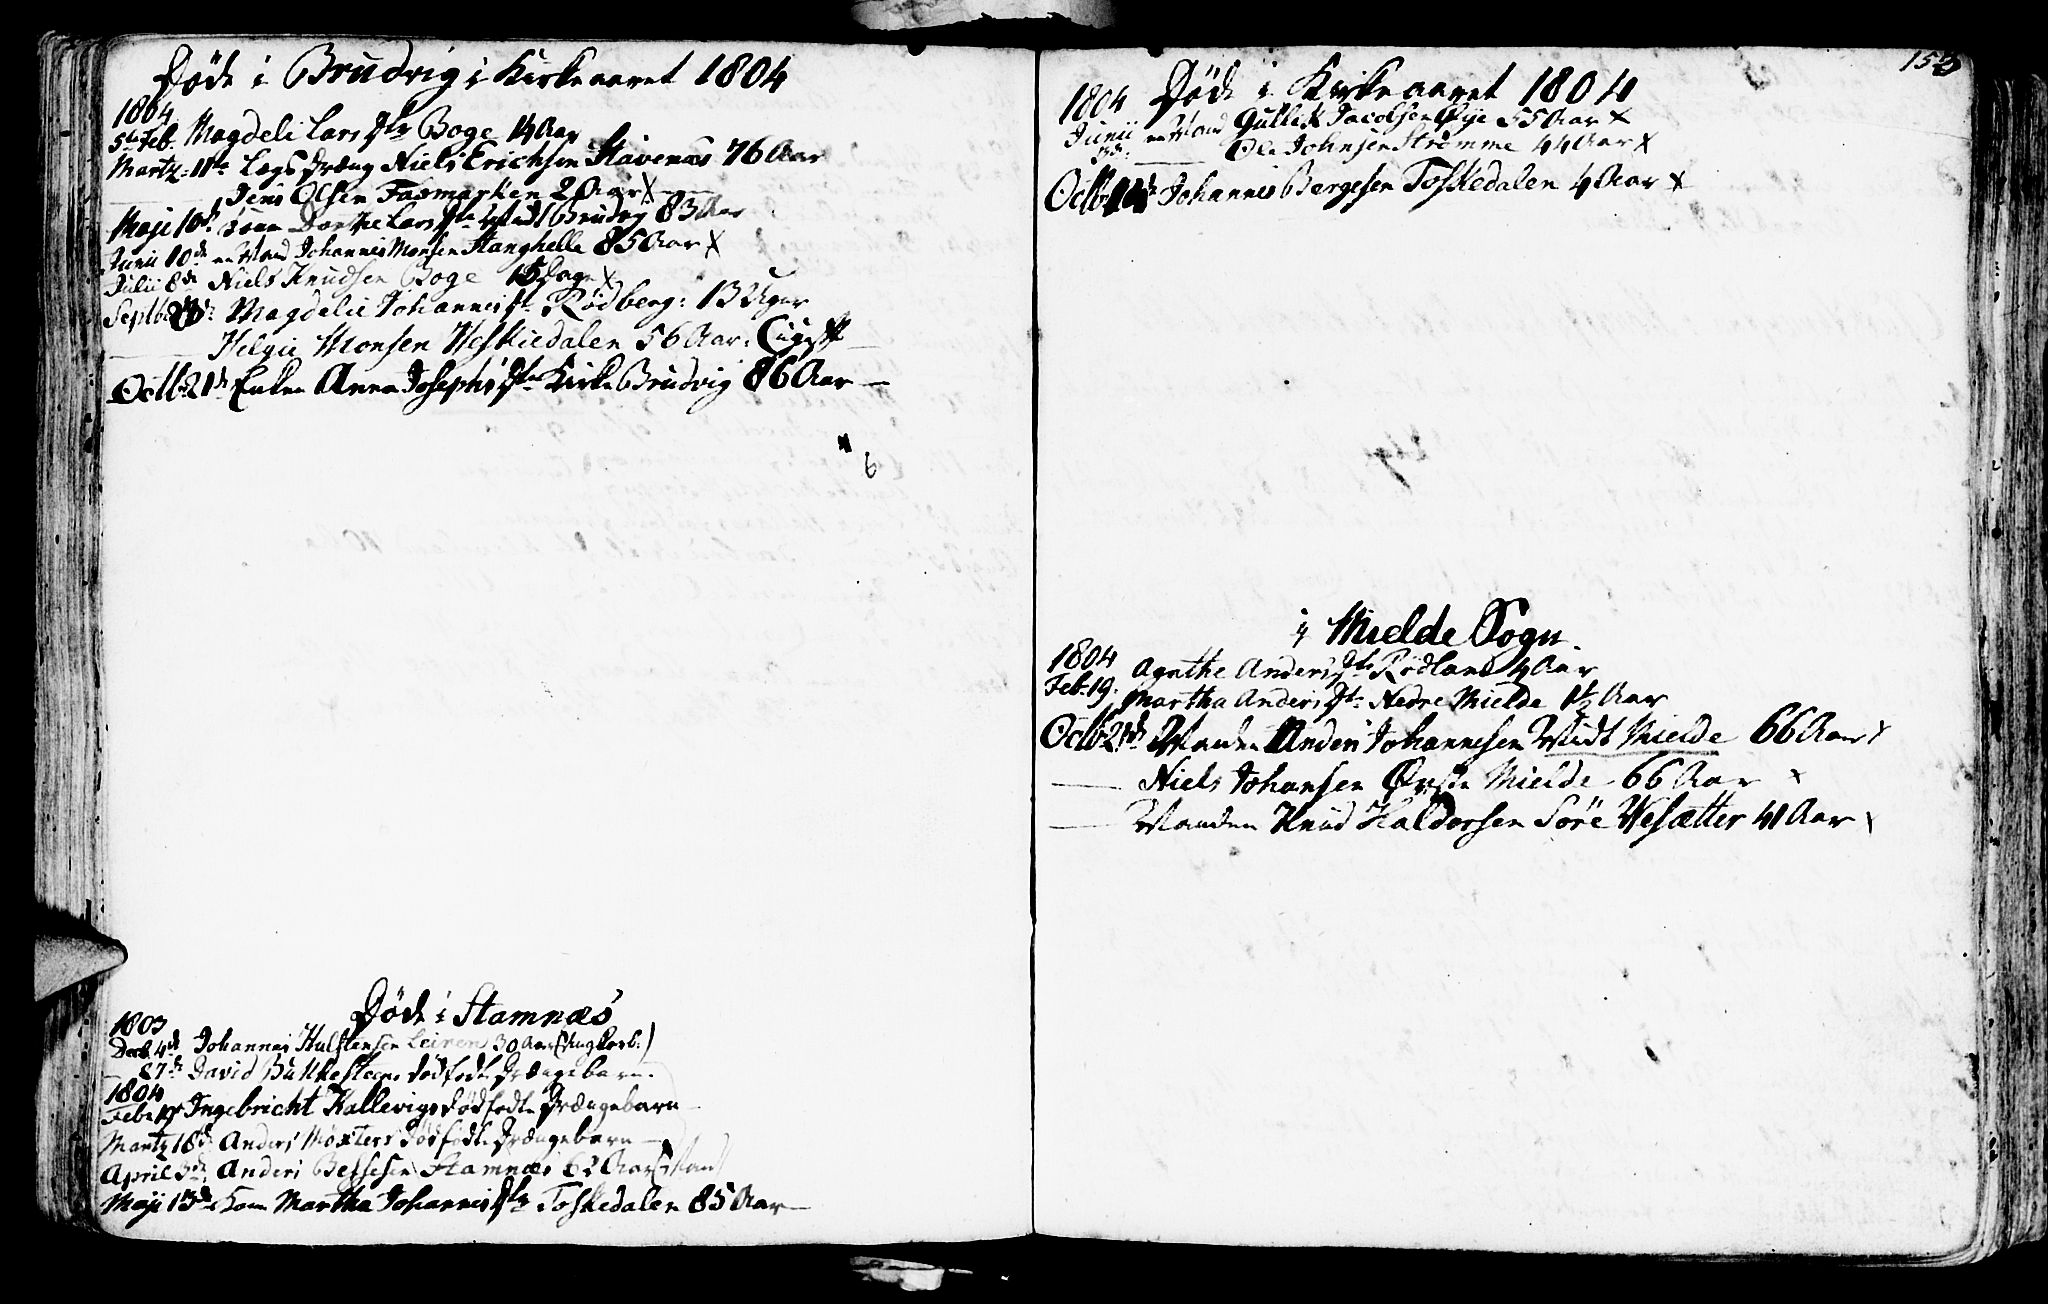 Døde i Brudvig i Kirkeaaret 1804
1804
5te Feb. Magdeli Lars Dtr Boge 14 Aar
Martz 11te Lægs Dræng Niels Erichsen Stavenæs 76 Aar
Jens Olsen Fasmarken 2 Aar X
Maji 10de Dorthe Lars Dtr Brudvig 83 Aar
Junii 10de en Mand Johannes Monsen Stanghelle 85 Aar X
Julii 8de Niels Knudsen Boge 15 Dage X
Septb. Magdeli Johannes Dtr Rødberg: 13 Uger
Helgie Monsen Heskiedalen 56 Aar.
Octb. 21de Enken Anna Josephs Dtr Kirke Brudvig 86 Aar
6
Døde i Stamnæs
1803
Decb. 4de Johannes Hulstensen Leiren 30 Aar (Ungkarl.)
David Bukkesteens dødfødte Drængebarn.
1804
Feb. Ingebricht Kallevigs dødfødte Drængebarn
Martz 18de Anders Møxters dødfødte Drængebarn
April 3de Anders Bessesen Stamnæs 62 Aar (Mand)
Maji 13de Kone Martha Johannes Dtr Toskedalen 85 Aar
153
Døde i Kirkeaaret 1804
1804
Junii en Mand Gullik Jacobsen Øye 55 Aar X
Ole Johnsen Strømme 44 Aar X
Octb. 14de Johannes Børgesen Toskedalen 4 Aar X
i Mielde Sogn
1804
Feb. 19. Agathe Anders Dtr Rødland 4 Aar
Martha Anders Dtr Nedre Mielde 1½ Aar
Octb. 21de Manden Anders Johannesen Midt Mielde 66 Aar X
Niels Johansen Øvste Mielde 66 Aar X
Manden Knud Haldorsen Søre Wesætter 41 Aar X